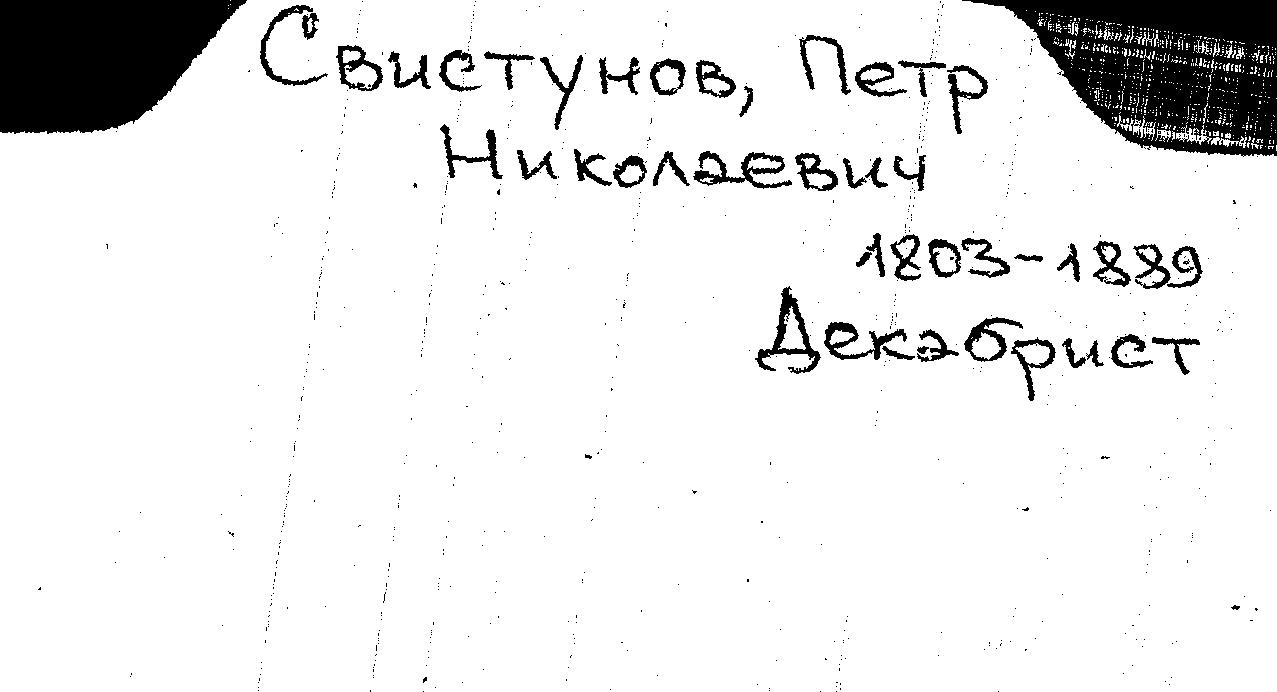 Свистунов, Петр
Николаевич
1803-1889
Декабрист